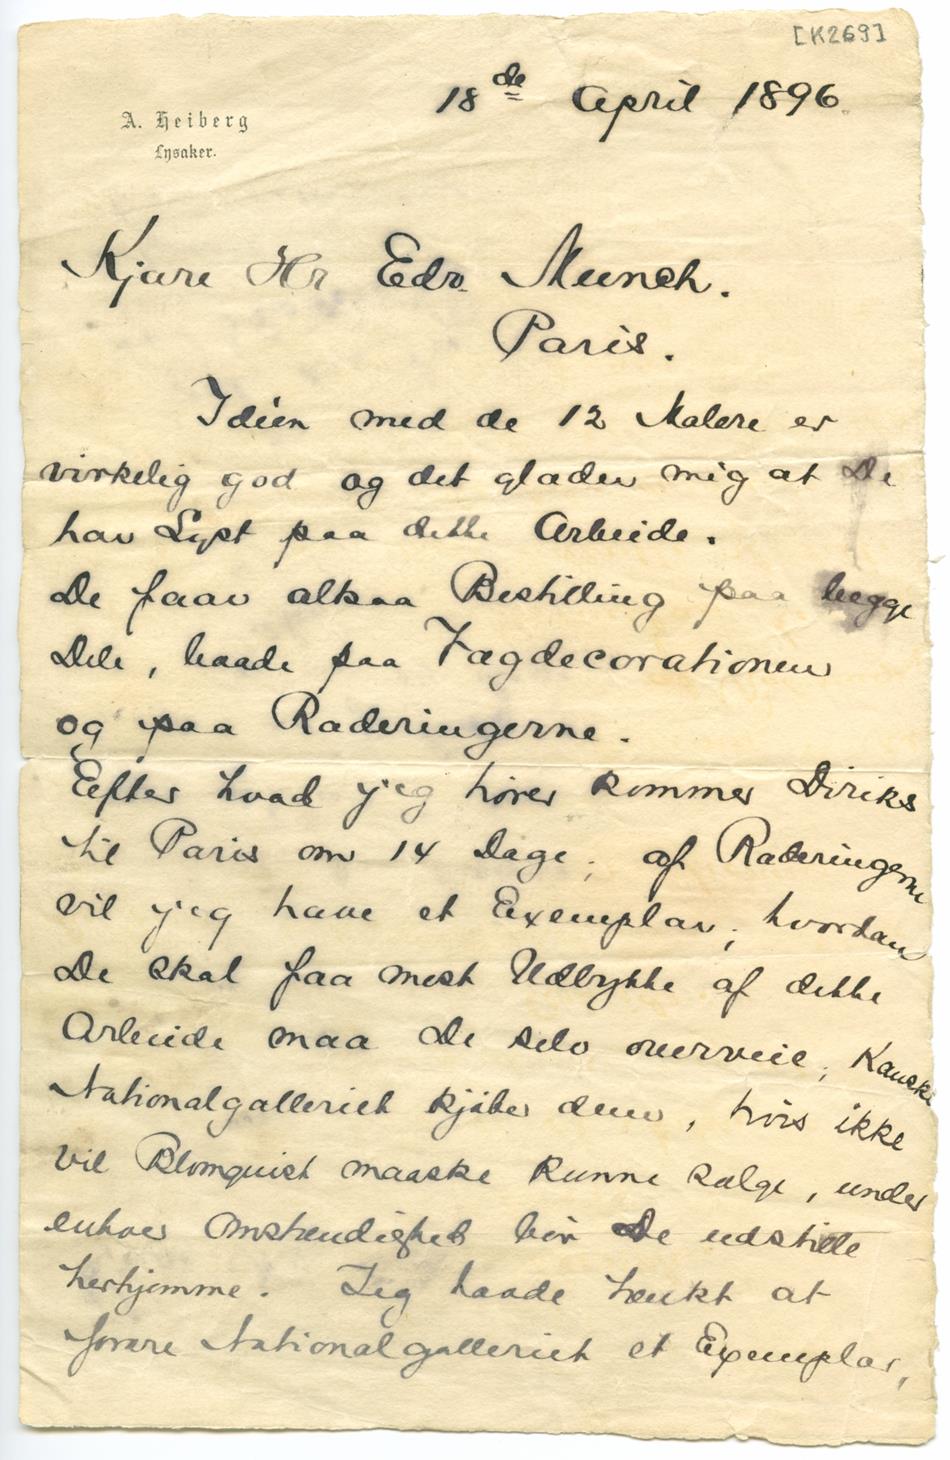 [K269]
18de April 1896.
A. Heiberg
Lysaker.
Kjære Hr Edv. Munch.
Paris.
Idéen med de 12 Malere er
virkelig god og det glæder mig at De
har Lyst paa dette Arbeide.
De faar altsaa Bestilling paa begge
Dele, baade paa Vægdecorationen
og paa Raderingerne.
Efter hvad jeg hører kommer Diriks
til Paris om 14 Dage; af Raderingerne
vil jeg have et Exemplar; hvordan
De skal faa mest Udbytte af dette
Arbeide maa De selv overveie; Kanske
Nationalgalleriet kjøber dem, hvis ikke
vil Blomquist maaske kunne sælge, under
enhver Omstændighed bør De udstille
herhjemme. Jeg havde tænkt at
forære Nationalgalleriet et Exemplar,